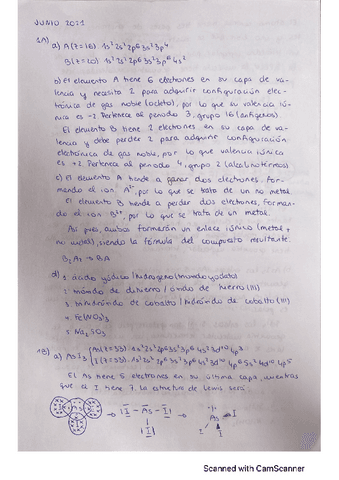 JUNIO 2021
1A)
a) A (Z=16) 1s² 2s² 2p⁶ 3s² 3p⁴
B (Z=20) 1s² 2s² 2p⁶ 3s² 3p⁶ 4s²
b) El elemento A tiene 6 electrones en su capa de va-
lencia y necesita 2 para adquirir configuración elec-
trónica de gas noble (octeto), por lo que su valencia ióni-
ca es -2. Pertenece al periodo 3, grupo 16 (anfígenos).
El elemento B tiene 2 electrones en su capa de va-
lencia y debe perder 2 para adquirir configuración
electrónica de gas noble, por lo que valencia iónica
es +2. Pertenece al periodo 4, grupo 2 (alcalinotérreos)
c) El elemento A tiende a ganar dos electrones, for-
mando el ion A²⁻, por lo que se trata de un no metal.
El elemento B tiende a perder dos electrones, forman-
do el ion B²⁺, por lo que se trata de un metal.
Así pues, ambos formarán un enlace iónico (metal +
no metal), siendo la fórmula del compuesto resultante:
B₂A₂ → BA
d)
1 ácido yódico / hidrogeno (trioxidoyodato)
2 / óxido de hierro (III)
3 trihidruro de cobalto / hidruro de cobalto (III)
4 Fe(NO₃)₃
5 Na₂SO₃
1B) a) AsI₃ { As (Z=33) 1s² 2s² 2p⁶ 3s² 3p⁶ 4s² 3d¹⁰ 4p³
I (Z=53) 1s² 2s² 2p⁶ 3s² 3p⁶ 4s² 3d¹⁰ 4p⁶ 5s² 4d¹⁰ 5p⁵
El As tiene 5 electrones en su última capa, mientras
que el I tiene 7. La estructura de Lewis será:
I As I → I - As - I → As I
I I I I
Scanned with CamScanner